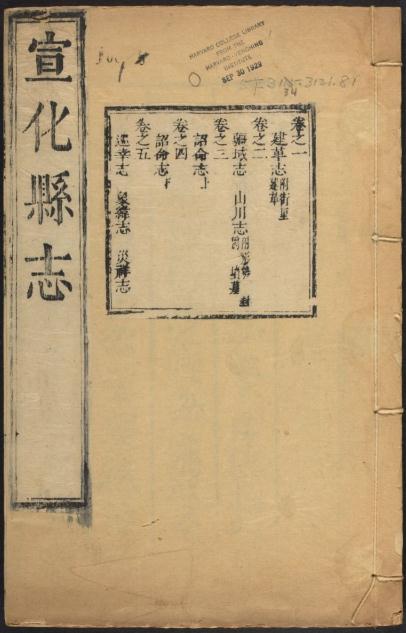 宣化縣志
卷之一
建革志
卷之二
疆域志 山川志
卷之三
詔命志上
卷之四
詔命志下
卷之五
巡幸志 星緯志 災祥志
HARVARD COLLEGE LIBRARY
FROM THE
HARVARD-YENCHING
INSTITUTE
SEP 30 1929